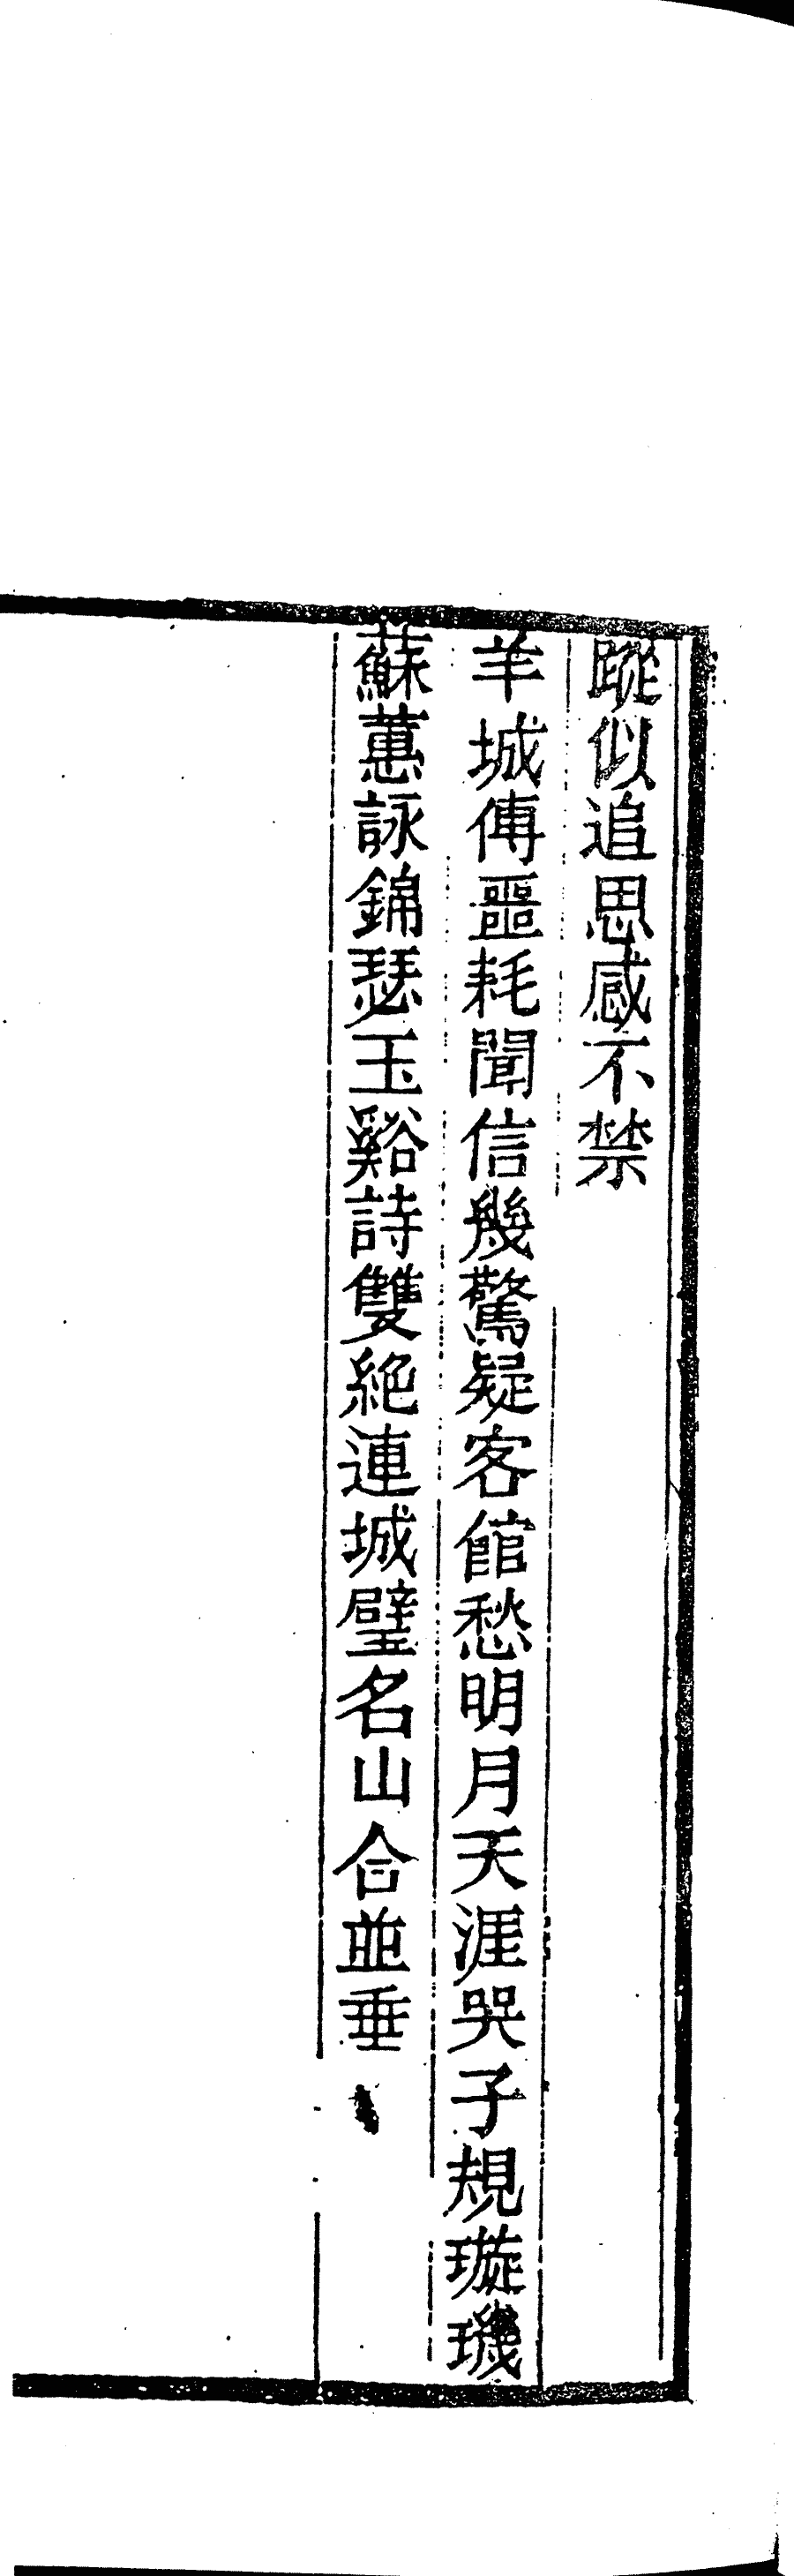 蹤似追思感不禁
羊城傳噩耗聞信幾驚疑客館愁明月天涯哭子規璇璣
蘇蕙詠錦瑟玉谿詩雙絶連城璧名山合並垂